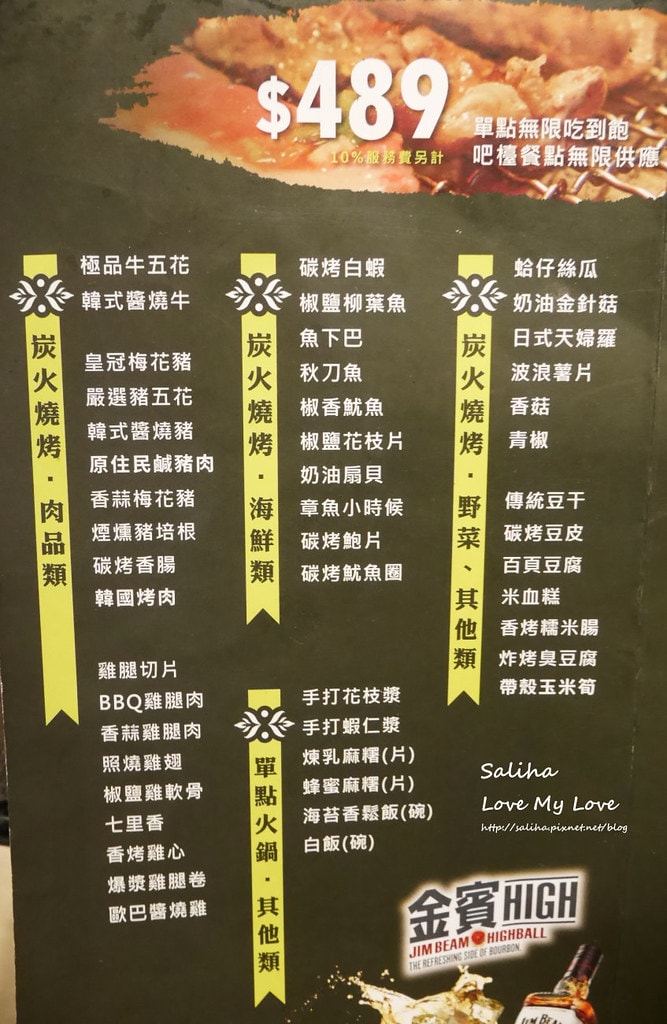 $489
10%服務費另計
單點無限吃到飽
吧檯餐點無限供應
炭火燒烤·肉品類
極品牛五花
韓式醬燒牛
皇冠梅花豬
嚴選豬五花
韓式醬燒豬
原住民鹹豬肉
香蒜梅花豬
煙燻豬培根
碳烤香腸
韓國烤肉
雞腿切片
BBQ雞腿肉
香蒜雞腿肉
照燒雞翅
椒鹽雞軟骨
七里香
香烤雞心
爆漿雞腿卷
歐巴醬燒雞
炭火燒烤·海鮮類
碳烤白蝦
椒鹽柳葉魚
魚下巴
秋刀魚
椒香魷魚
椒鹽花枝片
奶油扇貝
章魚小時候
碳烤鮑片
碳烤魷魚圈
單點火鍋·其他類
手打花枝漿
手打蝦仁漿
煉乳麻糬(片)
蜂蜜麻糬(片)
海苔香鬆飯(碗)
白飯(碗)
炭火燒烤·野菜、其他類
蛤仔絲瓜
奶油金針菇
日式天婦羅
波浪薯片
香菇
青椒
傳統豆干
碳烤豆皮
百頁豆腐
米血糕
香烤糯米腸
炸烤臭豆腐
帶殼玉米筍
Saliha
Love My Love
http://saliha.pixnet.net/blog
金賓HIGH
JIM BEAM HIGHBALL
THE REFRESHING SIDE OF BOURBON.
JIM BEA